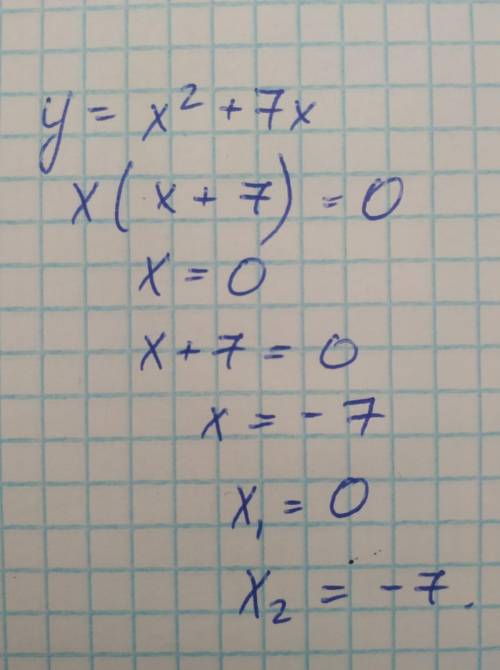 y = x² + 7x
x(x + 7) = 0
x = 0
x + 7 = 0
x = - 7
x₁ = 0
x₂ = - 7.